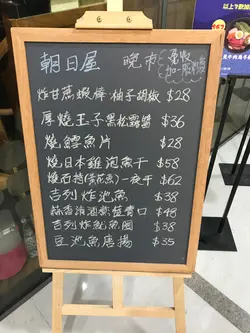 朝日屋 晚市
炸甘蔗蝦棒 柚子胡椒 $28
厚燒玉子黑松露醬 $36
燒鱈魚片 $28
燒日本雞泡魚干 $58
燒石持(黃花魚)一夜干 $62
吉列炸池魚 $38
蒜香 青口 $48
吉列炸魷魚圈 $38
豆池魚唐揚 $35